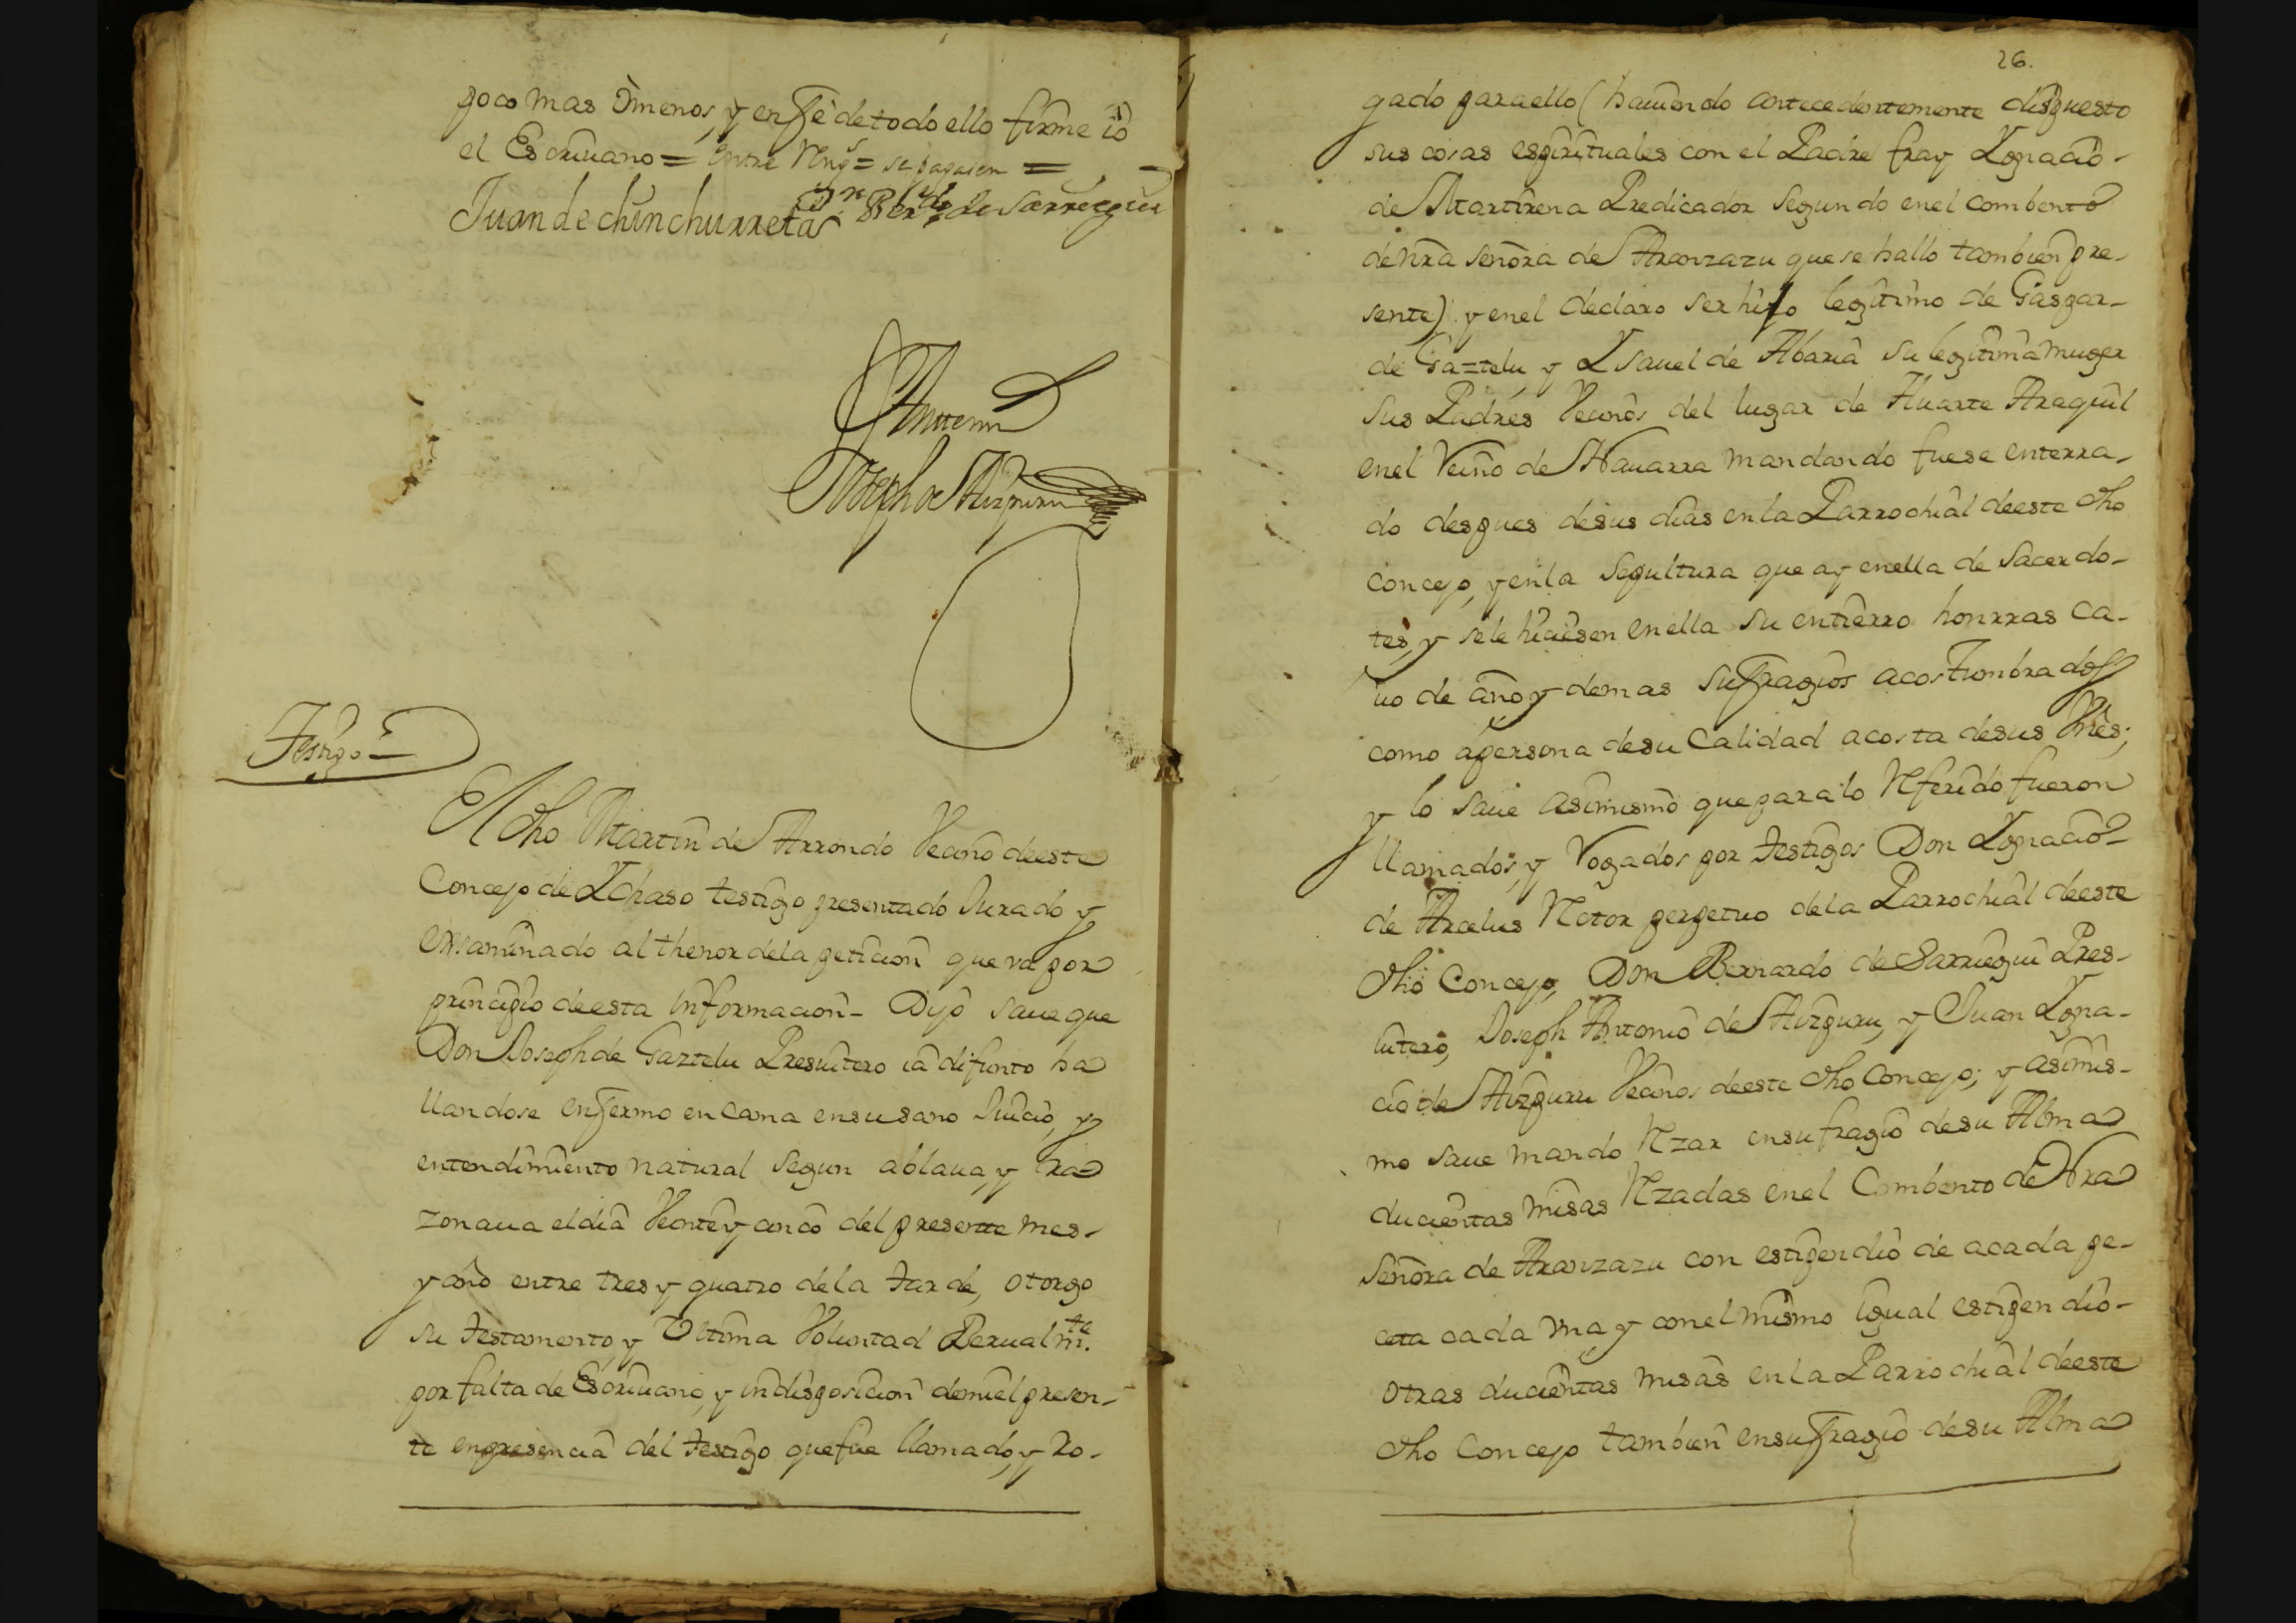 poco mas òmenos, y enfeè detodo ello firme io
el Escriuano = entre Rengs = se pagasen =
Juan de chinchurreta Dn Berdo de Sarriegui
Antemi
Joseph de Aizpuru
Testigo
El dho Martin de Arrondo Vecino deeste
Concejo de Ychaso testigo presentado Jurado y
exsaminado al thenor dela peticion que va por
principio deesta Informacion - Dijo saue que
Don Joseph de Gaztelu Presuitero ia difunto ha
llandose enfermo en cama ensu sano Juicio, y
entendimiento natural segun ablaua, y ra
zonaua el dia Veinte y cinco del presente mes
y año entre tres y quatro dela tarde, otorgo
su testamento, y Vltima Voluntad Berualmte.
por falta de Escriuano, y indisposicion demi el presen-
te enpresencia del testigo quefue llamado, y ro-
26.
gado paraello (hauiendo antecedentemente dispuesto
sus cosas espirituales con el Padre fray Ygnacio
de Martirena Predicador segundo enel combento
de nra señora de Aranzazu que se hallo tambien pre-
sente) y enel declaro ser hijo legitimo de Gaspar
de Gaztelu y Ysauel de Abaria su legitima muger
sus Padres Vecinos del lugar de Huarte Araquil
enel Reino de Nauarra mandando fuese enterra-
do despues desus dias enla Parrochial deeste dho
concejo, y enla sepultura que ay enella de sacerdo-
tes, y sele hiciesen enella su entierro honrras ca-
uo de año y demas sufragios acostumbrados
como apersona desu Calidad acosta desus Vnes;
y lo saue asimismo quepara lo Referido fueron
llamados, y Rogados por testigos Don Ygnacio
de Arcelus Retor perpetuo dela Parrochial deeste
dho Concejo, Don Bernardo de Sarriegui Pres-
uitero, Joseph Antonio de Aizpuru, y Juan Ygna-
cio de Aizpuru Vecinos deeste dho Concejo; y asimis-
mo saue mando Rezar ensufragio desu Alma
ducientas misas Rezadas enel Combento de Nra
Señora de Aranzazu con estipendio de acada pe-
ceta cada vna, y conel mismo igual estipendio
otras ducientas misas enla Parrochial deeste
dho Concejo tambien ensufragio desu Alma